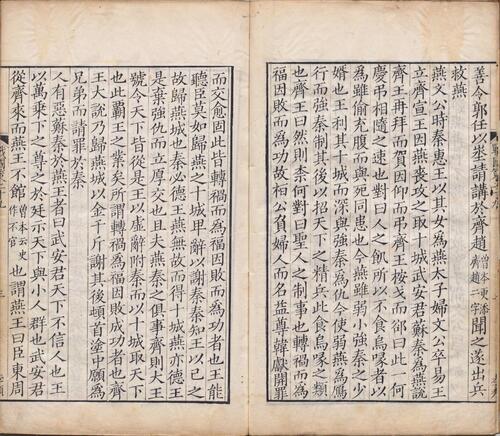 善令郭任以埊請講於齊趙曾本史本添齊趙二字聞之遂出兵
救燕
燕文公時秦惠王以其女為燕太子婦文公卒易王
立齊宣王因燕喪攻之取十城武安君蘇秦為燕說
齊王再拜而賀因仰而弔齊王桉戈而卻曰此一何
慶弔相隨之速也對曰人之飢所以不食烏喙者以
為雖偷充腹而與死同患也今燕雖弱小強秦之少
婿也王利其十城而深與強秦為仇今使弱燕為鴈
行而強秦制其後以招天下之精兵此食烏喙之類
也齊王曰然則柰何對曰聖人之制事也轉禍而為
福因敗而為功故桓公負婦人而名益尊韓獻開罪
而交愈固此皆轉禍而為福因敗而為功者也王能
聽臣莫如歸燕之十城卑辭以謝秦秦知王以己之
故歸燕城也秦必德王燕無故而得十城燕亦德王
是棄強仇而立厚交也且夫燕秦之俱事齊則大王
號令天下皆從是王以虛辭附秦而以十城取天下
也此霸王之業矣所謂轉禍為福因敗成功者也齊
王大說乃歸燕城以金千斤謝其後頓首塗中願為
兄弟而請罪於秦
人有惡蘇秦於燕王者曰武安君天下不信人也王
以萬乘下之尊之於廷示天下與小人群也武安君
從齊來而燕王不館曾本云史作不官也謂燕王曰臣東周